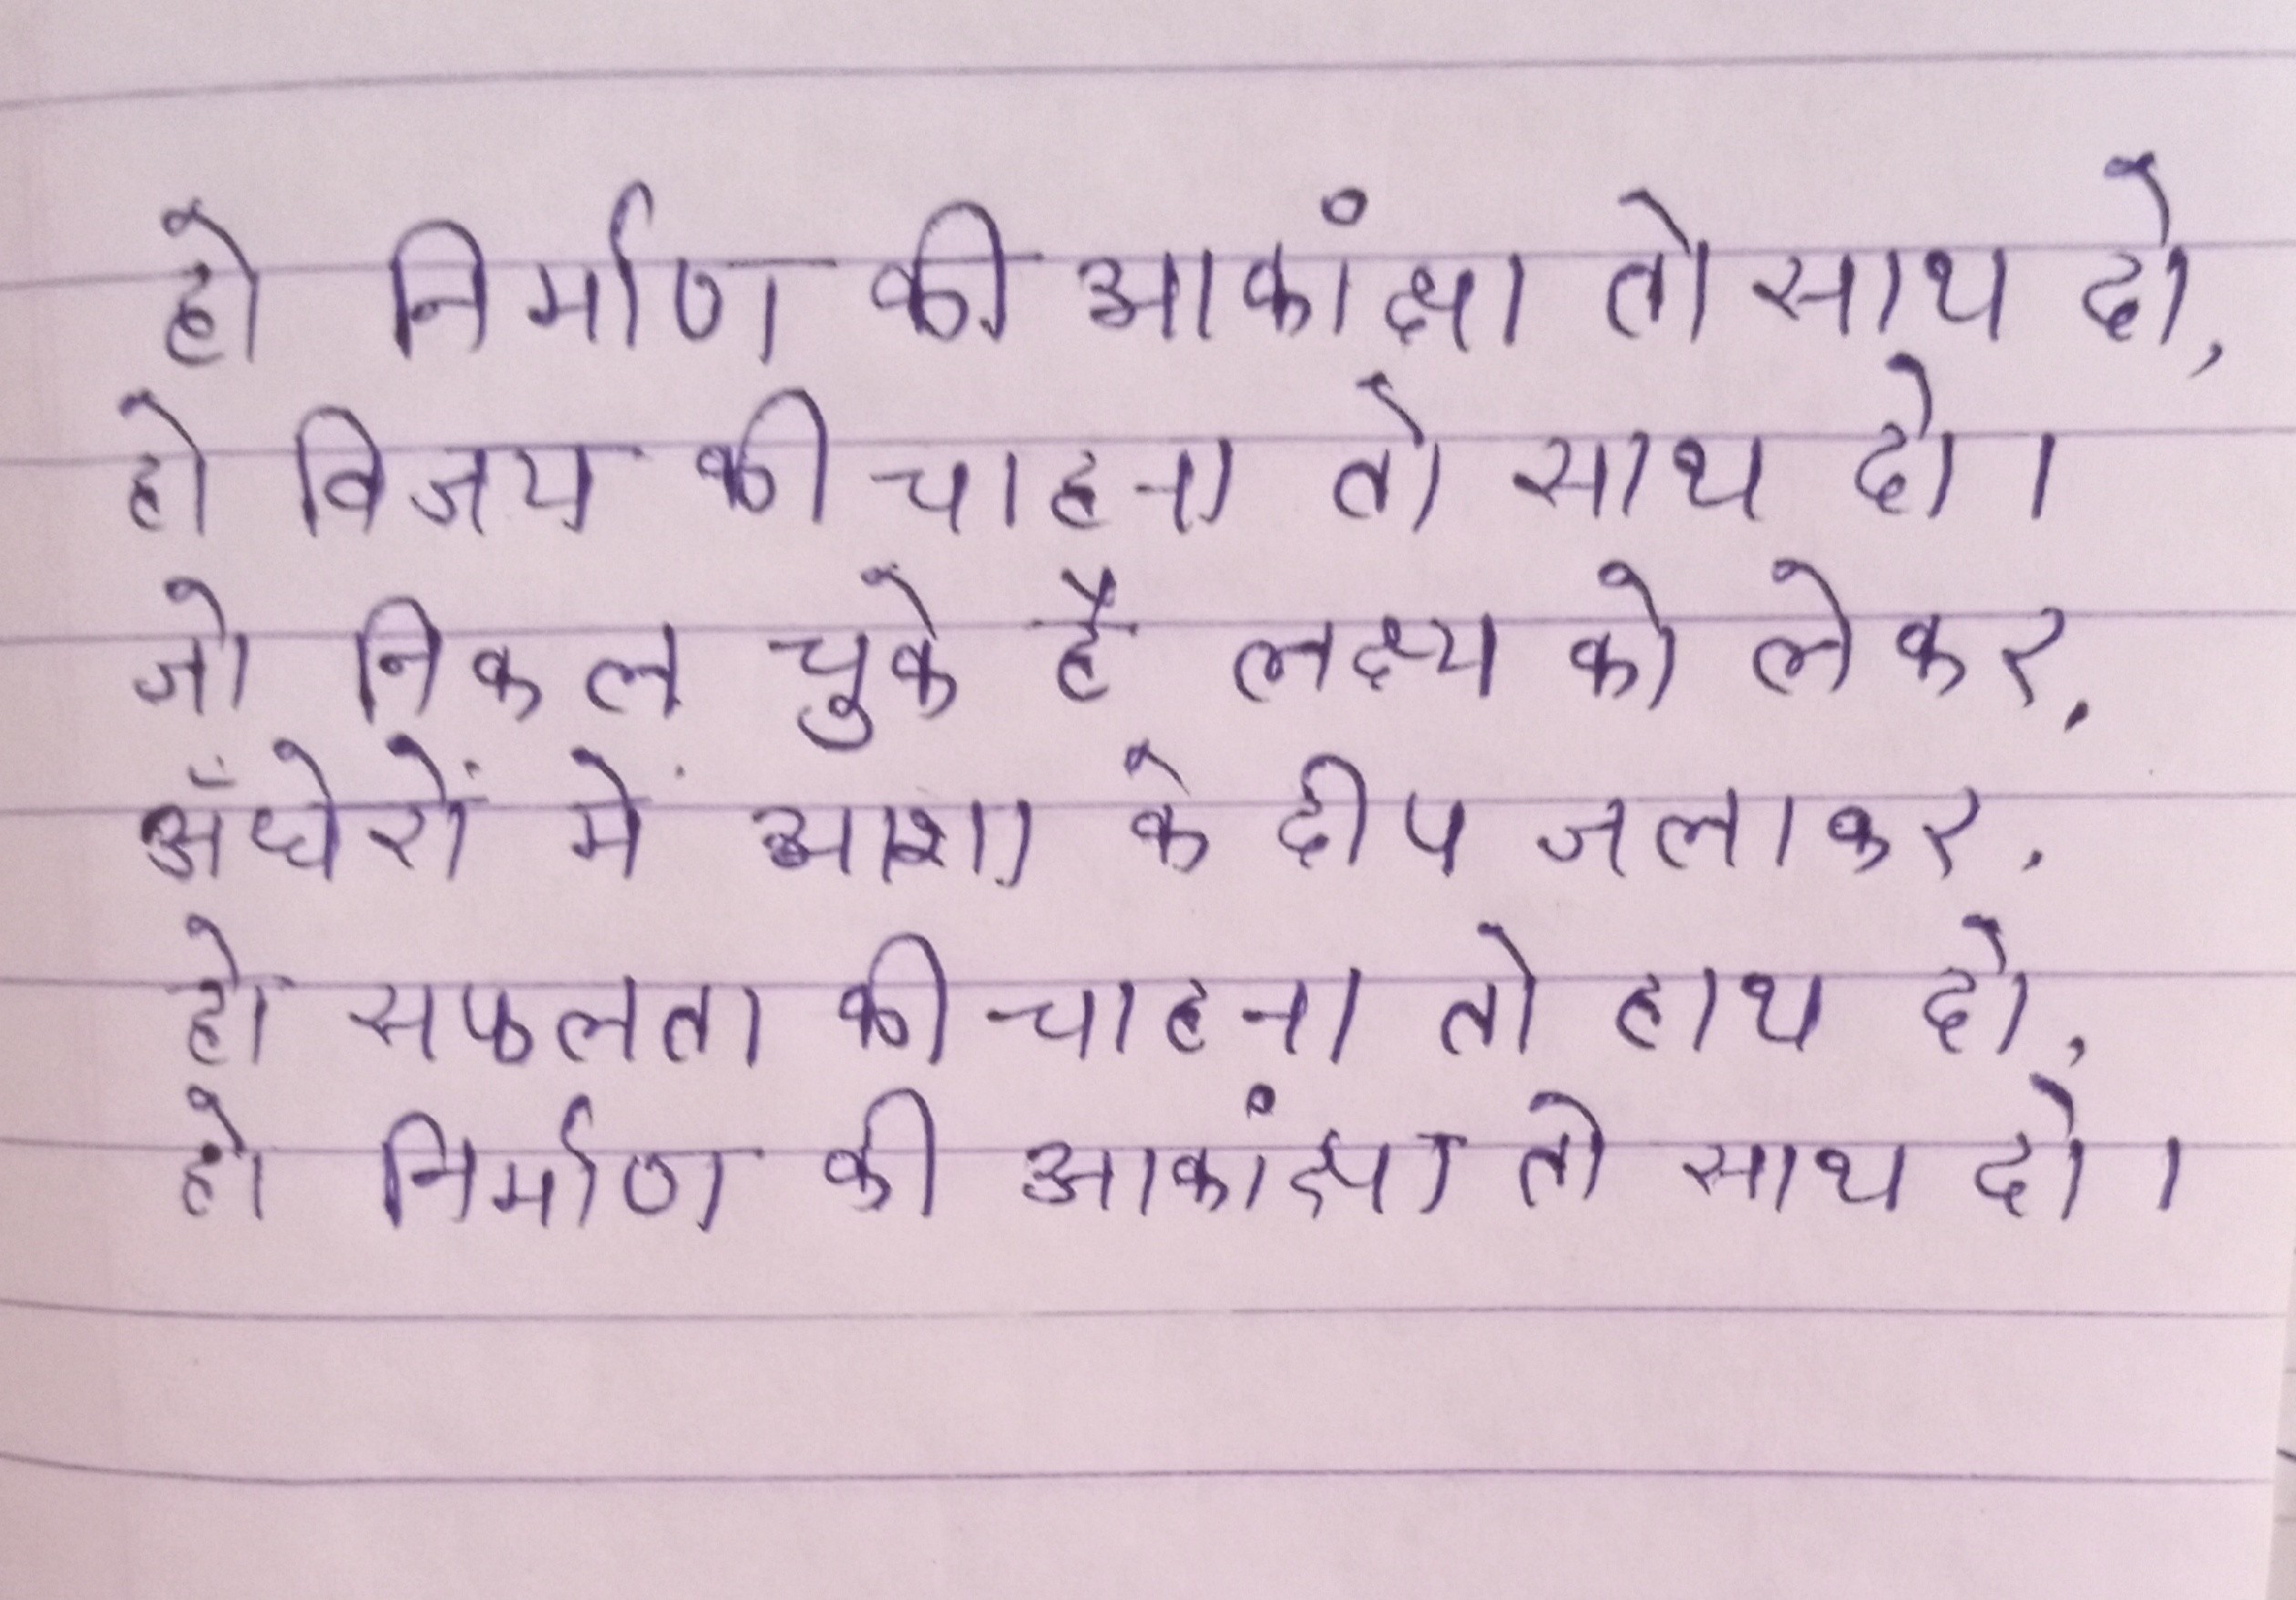 हो निर्माण की आकांक्षा तो साथ दो,
हो विजय की चाहना तो साथ दो ।
जो निकल चुके है लक्ष्य को लेकर,
अँधेरों में आशा के दीप जलाकर,
हो सफलता की चाहना तो हाथ दो,
हो निर्माण की आकांक्षा तो साथ दो ।